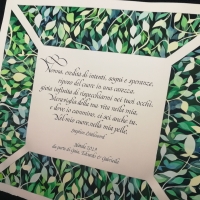 Nonna, eredità di intenti, sogni e speranze,
riposo del cuore in una carezza,
gioia infinita di rispecchiarmi nei tuoi occhi.
Meraviglia della tua vita nella mia,
e dove io cammino, ci sei anche tu,
Nel mio cuore, nella mia pelle.
Natale 2019
da parte di